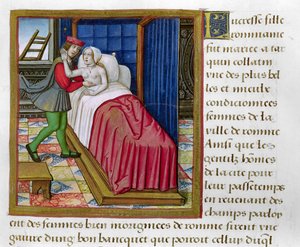 Lucresse fille
rommaine
fut mariee a tar
quin collatin
vne des plus bel
les et mieulx
condicionnees
femmes de la
ville de romme
Ainsi que les
gentilz hōmes
de la cite pour
leur passetemps
en reuenant des
champs parloy
ent des femmes bien de romme firent vne
dung bon bancquet que celluy duql